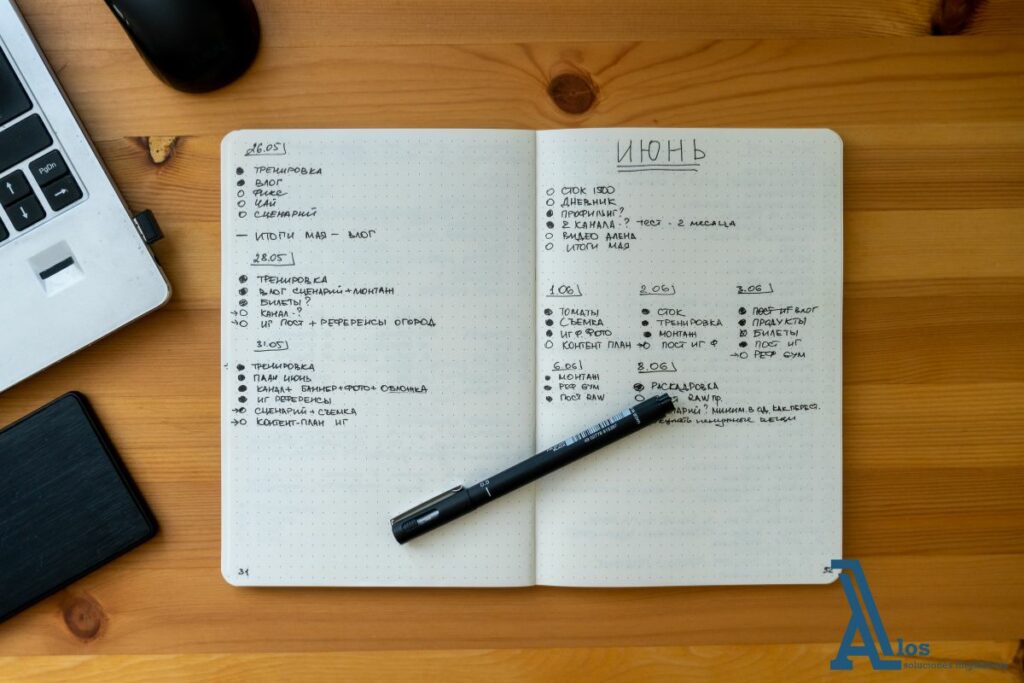 26.05
ТРЕНИРОВКА
ВЛОГ
ФИКС
ЧАЙ
СЦЕНАРИЙ
— ИТОГИ МАЯ – ВЛОГ
28.05
ТРЕНИРОВКА
ВЛОГ СЦЕНАРИЙ + МОНТАЖ
БИЛЕТЫ?
КАНАЛ - ?
ИГ ПОСТ + РЕФЕРЕНСЫ ОГОРОД
31.05
ТРЕНИРОВКА
ПЛАН ИЮНЬ
КАНАЛ + БАННЕР + ФОТО + ОБЛОЖКА
ИГ РЕФЕРЕНСЫ
СЦЕНАРИЙ + СЪЕМКА
КОНТЕНТ-ПЛАН ИГ
31
ИЮНЬ
СТОК 1500
ДНЕВНИК
2 КАНАЛА - ? ТЕСТ - 2 МЕСЯЦА
ВИДЕО АЛЕНА
ИТОГИ МАЯ
1.06
ТОМАТЫ
СЪЕМКА
ИГ Ф. ФОТО
КОНТЕНТ ПЛАН
2.06
СТОК
ТРЕНИРОВКА
МОНТАЖ
ПОСТ ИГ Ф
3.06
ПОСТ ИГ ВЛОГ
ПРОДУКТЫ
БИЛЕТЫ
ПОСТ ИГ
РЕФ GYM
6.06
МОНТАЖ
РЕФ GYM
ПОСТ RAW
8.06
РАСКАДРОВКА
RAW ПР.
? МИНИМ. В ОД. КАК ПЕРЕСТ.
НЕНУЖНЫЕ ВЕЩИ
PgDn
0.5
Alos
soluciones